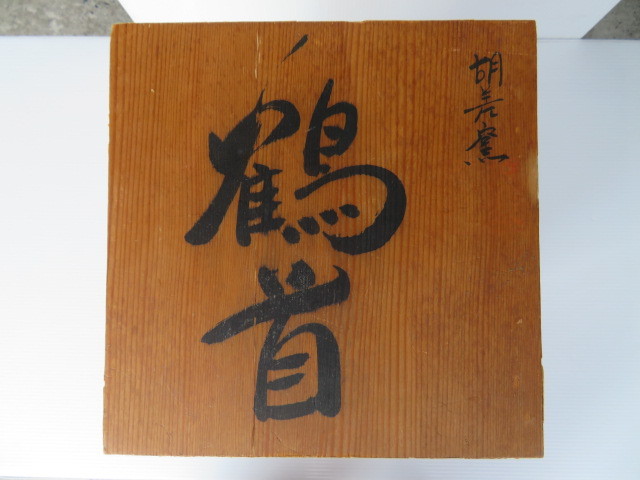 胡窯
鶴首